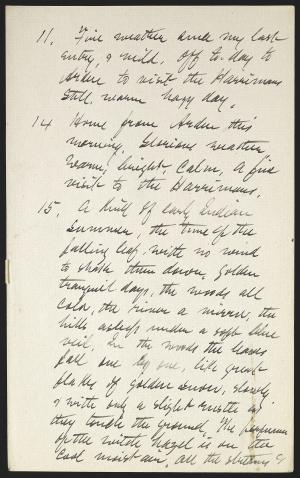 11. Fine weather since my last
entry, & mild. Off to-day to
Arden to visit the Harrimans
Still, warm hazy day.
14 Home from Arden this
morning. Glorious weather
warm, bright, calm, a fine
visit to the Harrimans.
15. A lull of early Indian
Summer, the time of the
falling leaf, with no wind
to shake them down, golden
tranquil days, the woods all
gold, the river a mirror, the
hills asleep under a soft blue
veil, in the woods the leaves
fall one by one, like great
flakes of golden snow, slowly
& with only a slight rustle as
they touch the ground. The perfume
of the witch hazel is on the
cool moist air, all the